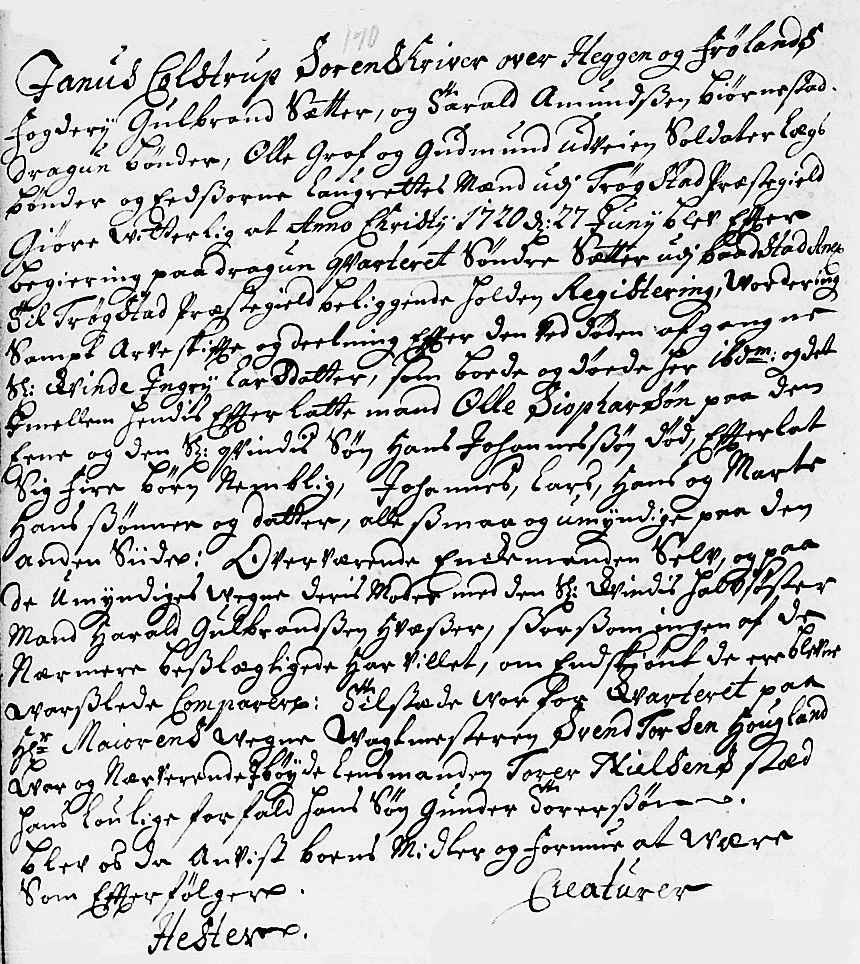 190
Janus Colstrup Sorenskriver over Heggen og Frølands
fogderj Gulbrand Sætter, og Harald Amundssen biørnestad
dragun bønder, Olle Graf og Gudmund udveien Soldater lægs
bønder og Eedssorne laugrettes Mænd udj Trøgstad Præstegield
Giøre witterlig at Anno Christj 1720 d: 27 Junij blev Efter
begiering paa dragun qvarteret Søndre Sætter udj baadstad Anex
til Trøgstad Præstegield beliggende holden Registering, Wordering
Sampt Arveskifte og deelning Efter den ved døden afgangne
Sl: Qvinde Ingrj larsdatter, som boede og døede her ibdm: og det
Imellem hendis Efterlatte mand Olle Siopharsøn paa den
Eene og den Sl: qvindis Søn Hans Johannessøn død, Efterlat
Sig fire børn Nemblig, Johannes, lars, Hans og Marte
Hans sønner og datter, alle smaa og umyndige paa den
anden Siide: Overværende Enckemanden Selv, og paa
de Umyndiges wegne deris Moder med den Sl: Qvindis halvsøster
Mand Harald Gulbrandssen Hvæsser, ssorssom ingen af de
Nærmere besslægtigede har villet, om Endskiønt de ere blevne
warsslede Comparere: Tilstæde war for Qvarteret paa
Hr Maiorens wegne Wagtmesteren Svend Torsen Hougland
war og Nærverende I böyde lensmanden Torer Nielsens stæd
hans loulige forfald hans Søn Gunder Torerssøn.
blev os da Anvist boens Midler og formue at være
Som Efterfølger.
Creaturer
Hester.